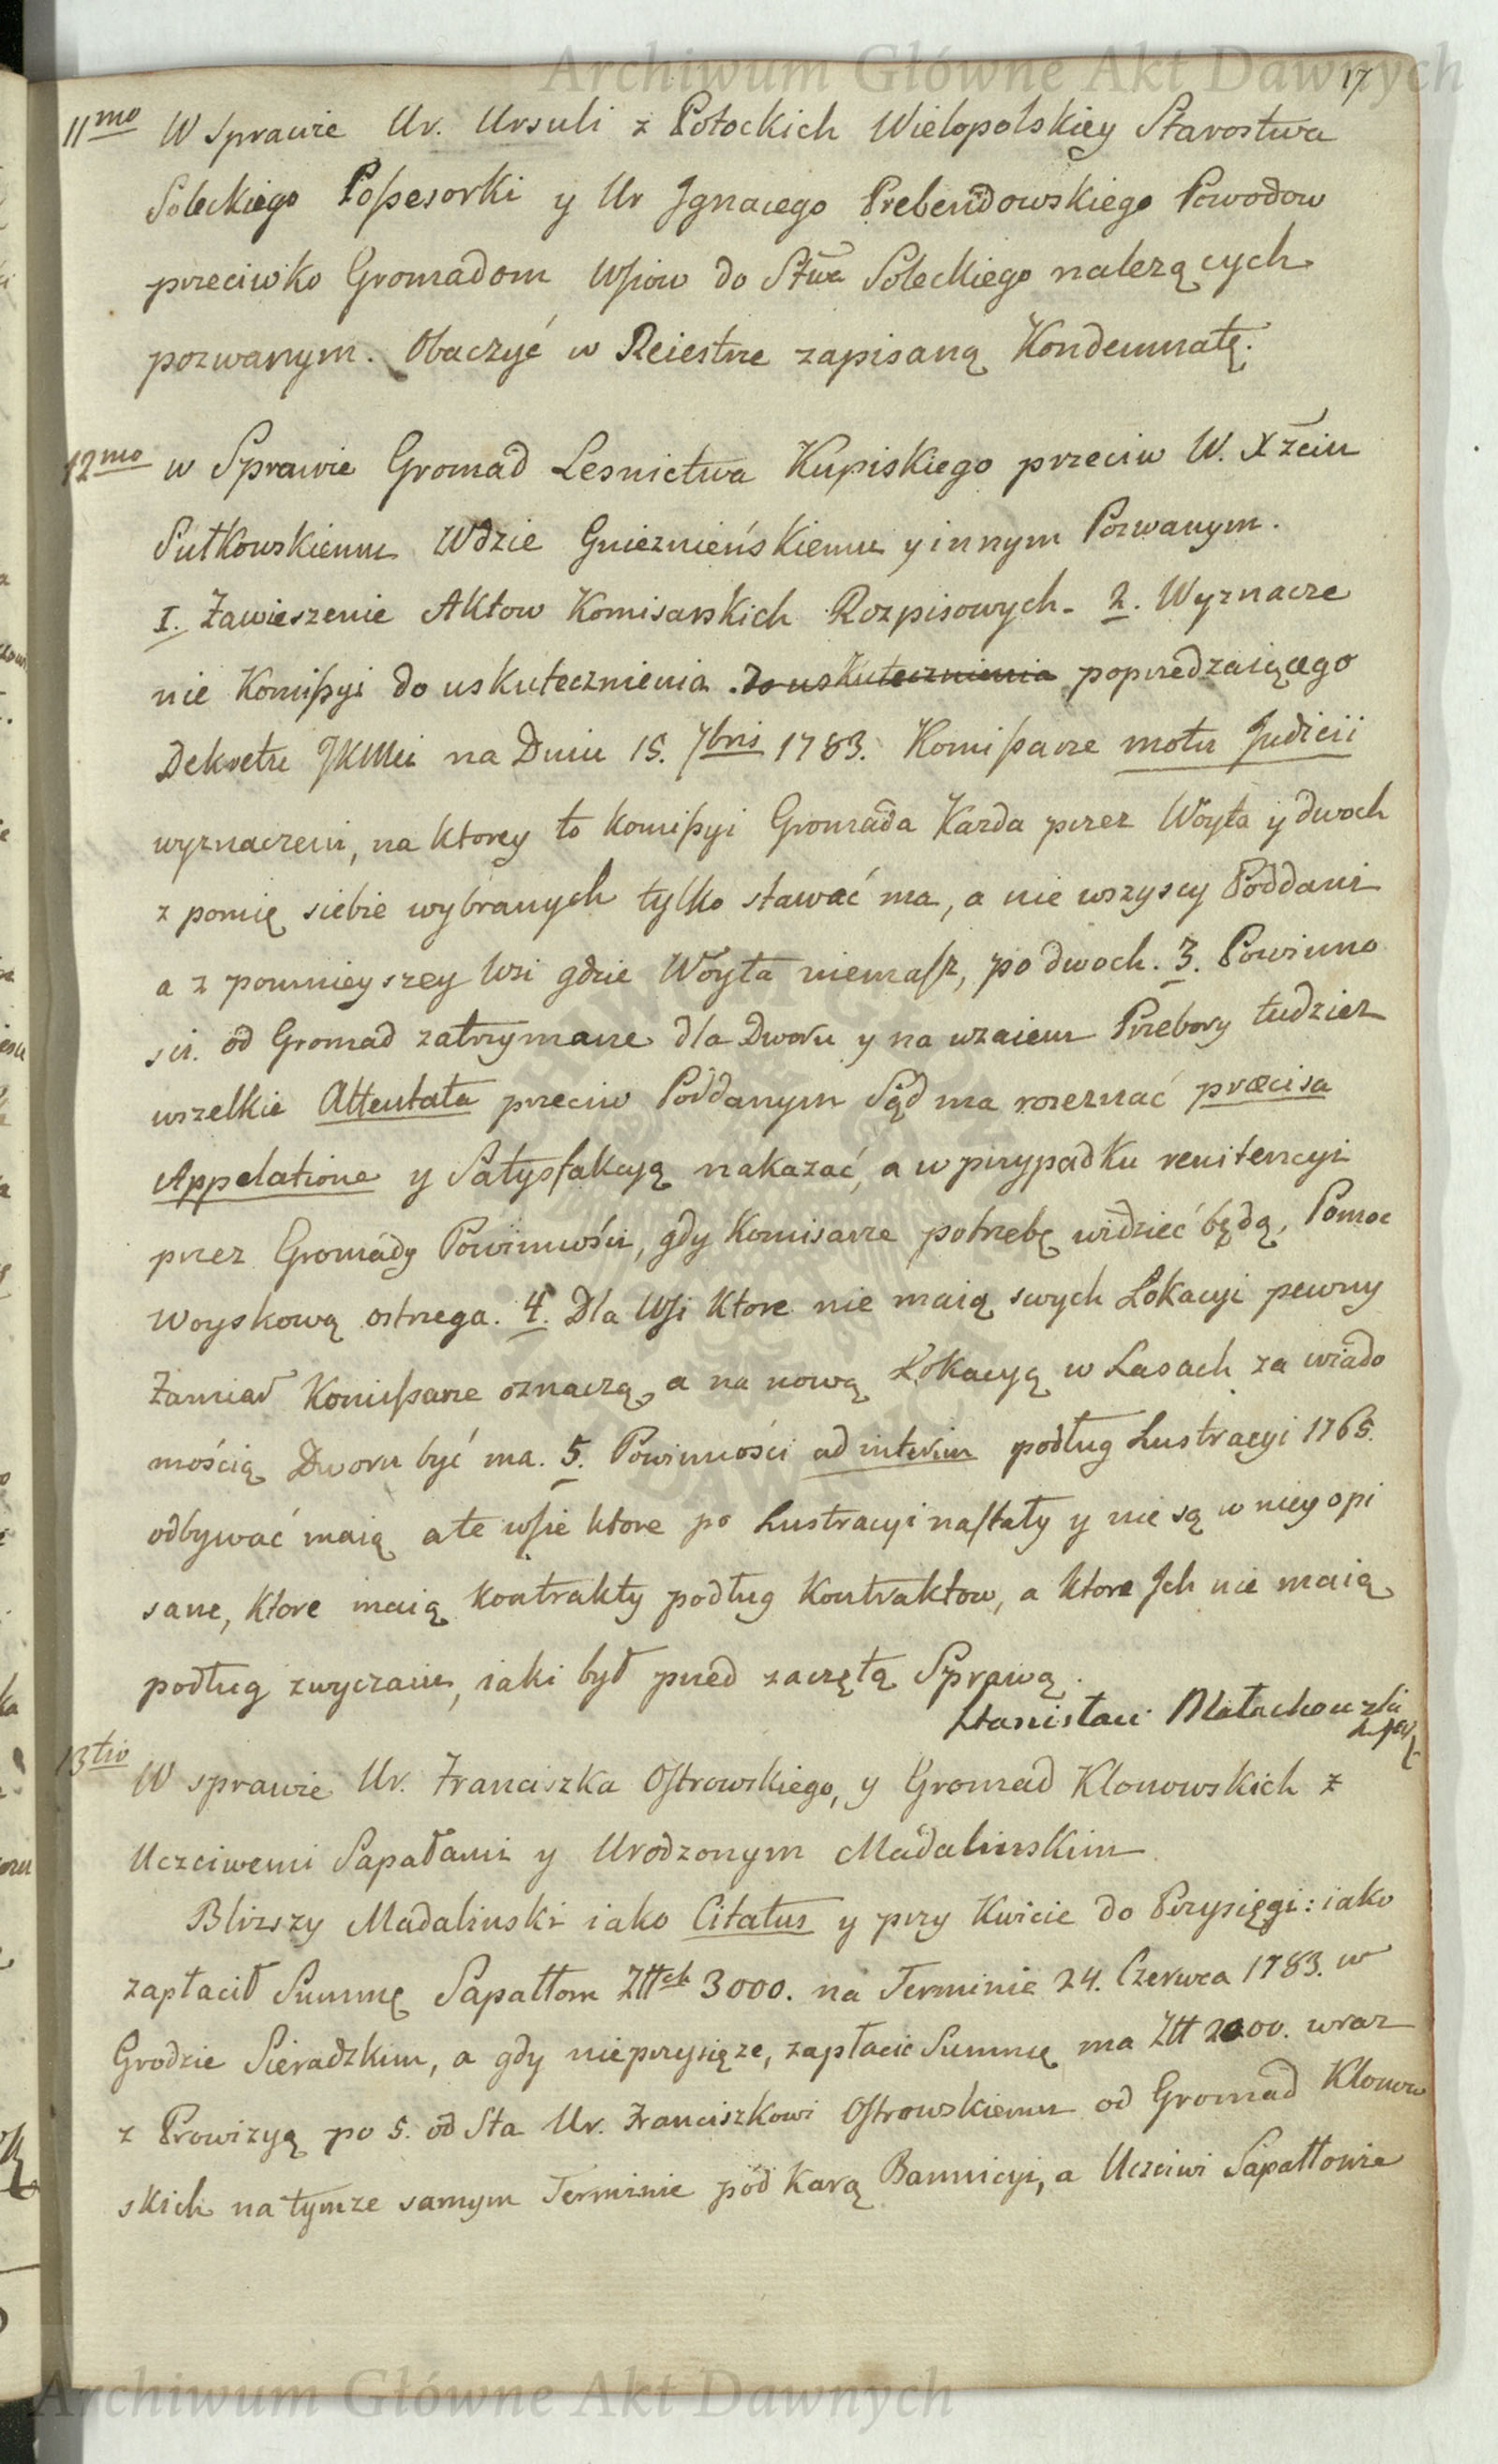 Archiwum Główne Akt Dawnych
17
11mo W sprawie Ur. Ursuli z Potockich Wielopolskiey Starostwa
Soleckiego Possesorki y Ur Ignacego Prebendowskiego Powodow
przeciwko Gromadom Wsiow do Stwa Soleckiego nalezących
pozwanym. Obaczyć w Reiestrze zapisaną Kondemnatę.
12mo w Sprawie Gromad Lesnictwa Kupiskiego przeciw W. Xżciu
Sułkowskiemu Wdzie Gnieznieńskiemu y innym Pozwanym.
I. Zawieszenie Aktow Komisarskich Rozpisowych. 2. Wyznacze
nie Komissyi do uskutecznienia do uskutecznienia poprzedzaiącego
Dekretu JKMci na Dniu 15. 7bris 1783. Komissarze motu Judicii
wyznaczeni, na ktorey to komissyi Gromada Kazda przez Woyta y dwoch
z pomię siebie wybranych tylko stawać ma, a nie wszyscy Poddani
a z pomnieyszey Wsi gdzie Woyta niemasz, po dwoch. 3. Powinno
sci od Gromad zatrzymane dla Dworu y na wzaiem Przebory tudziez
wszelkie Attentata przeciw Poddanym Sąd ma rozeznać præcisa
Appelatione y Satysfakcyą nakazać, a w przypadku renitencyi
przez Gromady Powinności, gdy Komisarze potrzebę widzieć będą, Pomoc
woyskową ostrzega. 4. Dla Wsi Ktore nie maią swych Lokacyi pewny
Zamiar Komissarze oznaczą, a na nową Lokacyą w Lasach za wiado
mością Dworu być ma. 5. Powinności ad interim podług Lustracyi 1765.
odbywać maią a te wsie ktore po Lustracyi nastały y nie są w niey opi
sane, Ktore maią Kontrakty podług Kontraktow, a ktore Jch nie maią
podług zwyczaiu, iaki był przed zaczętą Sprawą.
Stanisław Małachowski
13tio W sprawie Ur. Franciszka Ostrowskiego, y Gromad Klonowskich z
Uczciwemi Sapałami y Urodzonym Madalinskim
Blizszy Madalinski iako Citatus y przy Kwicie do Przysięgi: iako
zapłacił Summę Sapałłom Złłch 3000. na Terminie 24. Czerwca 1783. w
Grodzie Sieradzkim, a gdy nieprzysięze, zapłacic Summę ma Złł 2000. wraz
z Prowizyą po 5. od Sta Ur. Franciszkowi Ostrowskiemu od Gromad Klonow
skich na tymze samym Terminie pod Karą Bannicyi, a Uczciwi Sapałłowie
Archiwum Główne Akt Dawnych